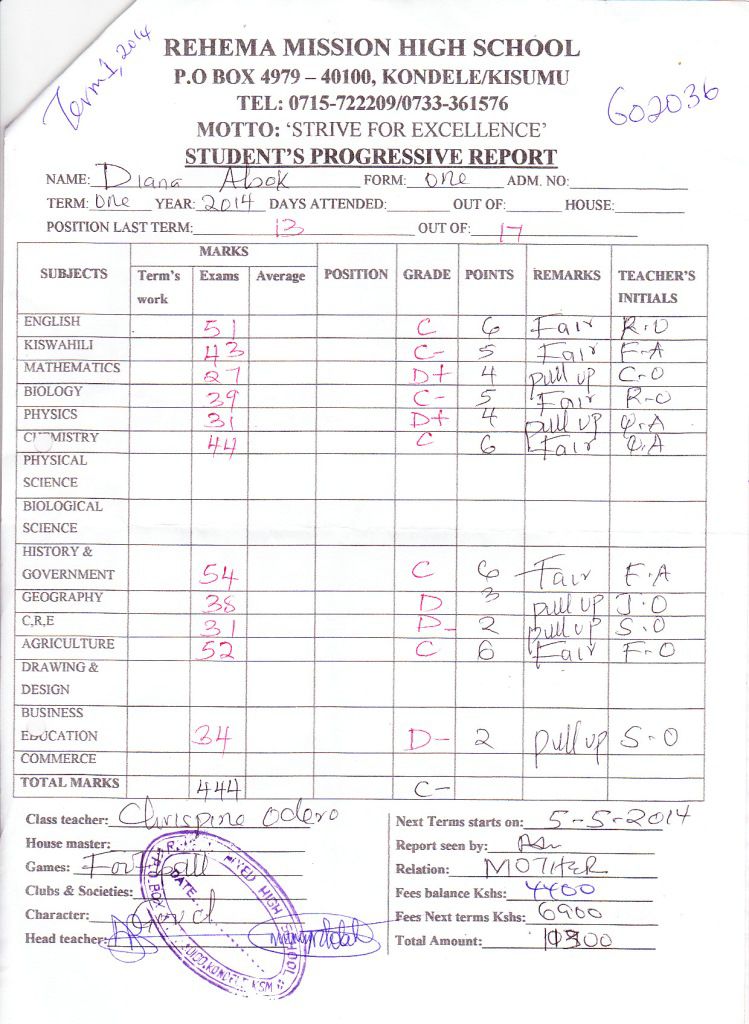 Term 1, 2014
REHEMA MISSION HIGH SCHOOL
P.O BOX 4979 – 40100, KONDELE/KISUMU
TEL: 0715-722209/0733-361576
602036
MOTTO: 'STRIVE FOR EXCELLENCE'
STUDENT'S PROGRESSIVE REPORT
NAME: Diana Abok FORM: one ADM. NO:
TERM: One YEAR: 2014 DAYS ATTENDED: OUT OF: HOUSE:
POSITION LAST TERM: 13 OUT OF: 17
SUBJECTS MARKS POSITION GRADE POINTS REMARKS TEACHER'S INITIALS
Term's work Exams Average
ENGLISH 51 C 6 Fair R.O
KISWAHILI 43 C- 5 Fair F-A
MATHEMATICS 27 D+ 4 pull up C-O
BIOLOGY 39 C- 5 Fair R-O
PHYSICS 31 D+ 4 pull up .A
CHEMISTRY 44 C 6 Fair .A
PHYSICAL SCIENCE
BIOLOGICAL SCIENCE
HISTORY & GOVERNMENT 54 C 6 Fair F.A
GEOGRAPHY 38 D 3 pull up J.O
C,R,E 31 D- 2 pull up S.O
AGRICULTURE 52 C 6 Fair F-O
DRAWING & DESIGN
BUSINESS EDUCATION 34 D- 2 pull up S-O
COMMERCE
TOTAL MARKS 444 C-
Class teacher: Chrispine Odero
House master:
Games: Football
Clubs & Societies:
Character:
Head teacher:
MIXED HIGH SCHOOL
P.O. BOX
DATE
KONDELE KSM
Next Terms starts on: 5-5-2014
Report seen by:
Relation: MOTHER
Fees balance Kshs: 4400
Fees Next terms Kshs: 6900
Total Amount: